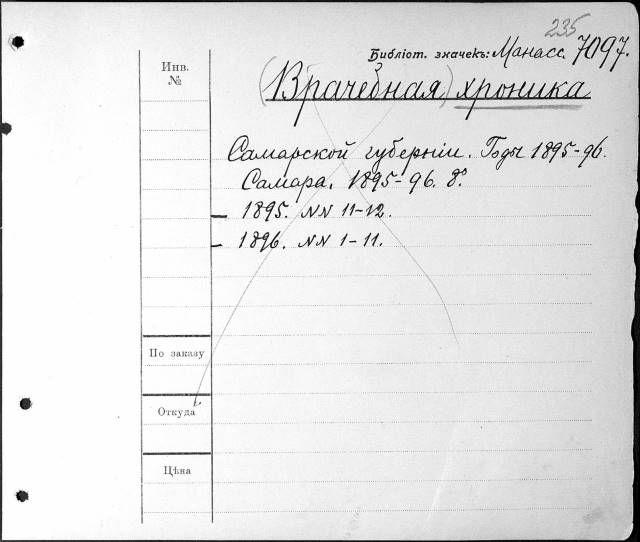 235
Библіот. значекъ: Манасс. 7097.
Инв.
№
(Врачебная) хроника
Самарской губерніи. Годы 1895-96.
Самара. 1895-96. 8º
– 1895. NN 11-12.
– 1896. NN 1-11.
По заказу
Откуда
Цѣна